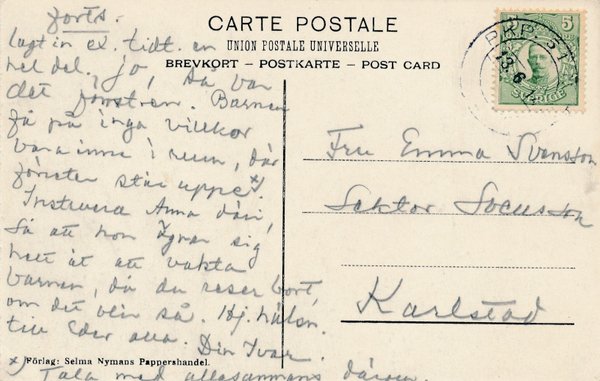 CARTE POSTALE
UNION POSTALE UNIVERSELLE
BREVKORT - POSTKARTE - POST CARD
forts.
lagt in ex. tidt. en
hel del. Jo, då var
det fönstren. Barnen
få på inga villkor
vara inne i rum, där
fönster står uppe x)
Instruera Anna däri,
så att hon ägnar sig
helt åt att vakta
barnen, då du reser bort,
om det blir så. Hj. häls.
till Eder alla. Din Ivar.
x) Tala med allesammans därom
Förlag: Selma Nymans Pappershandel.
5
SVERIGE
PKP
13.6
Fru Emma Svensson
Svensson
Karlstad